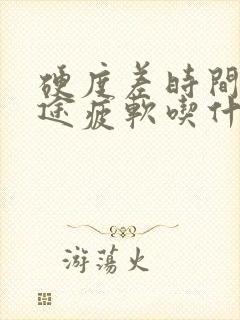 硬度差時間
途疲軟喫什
游蕩火